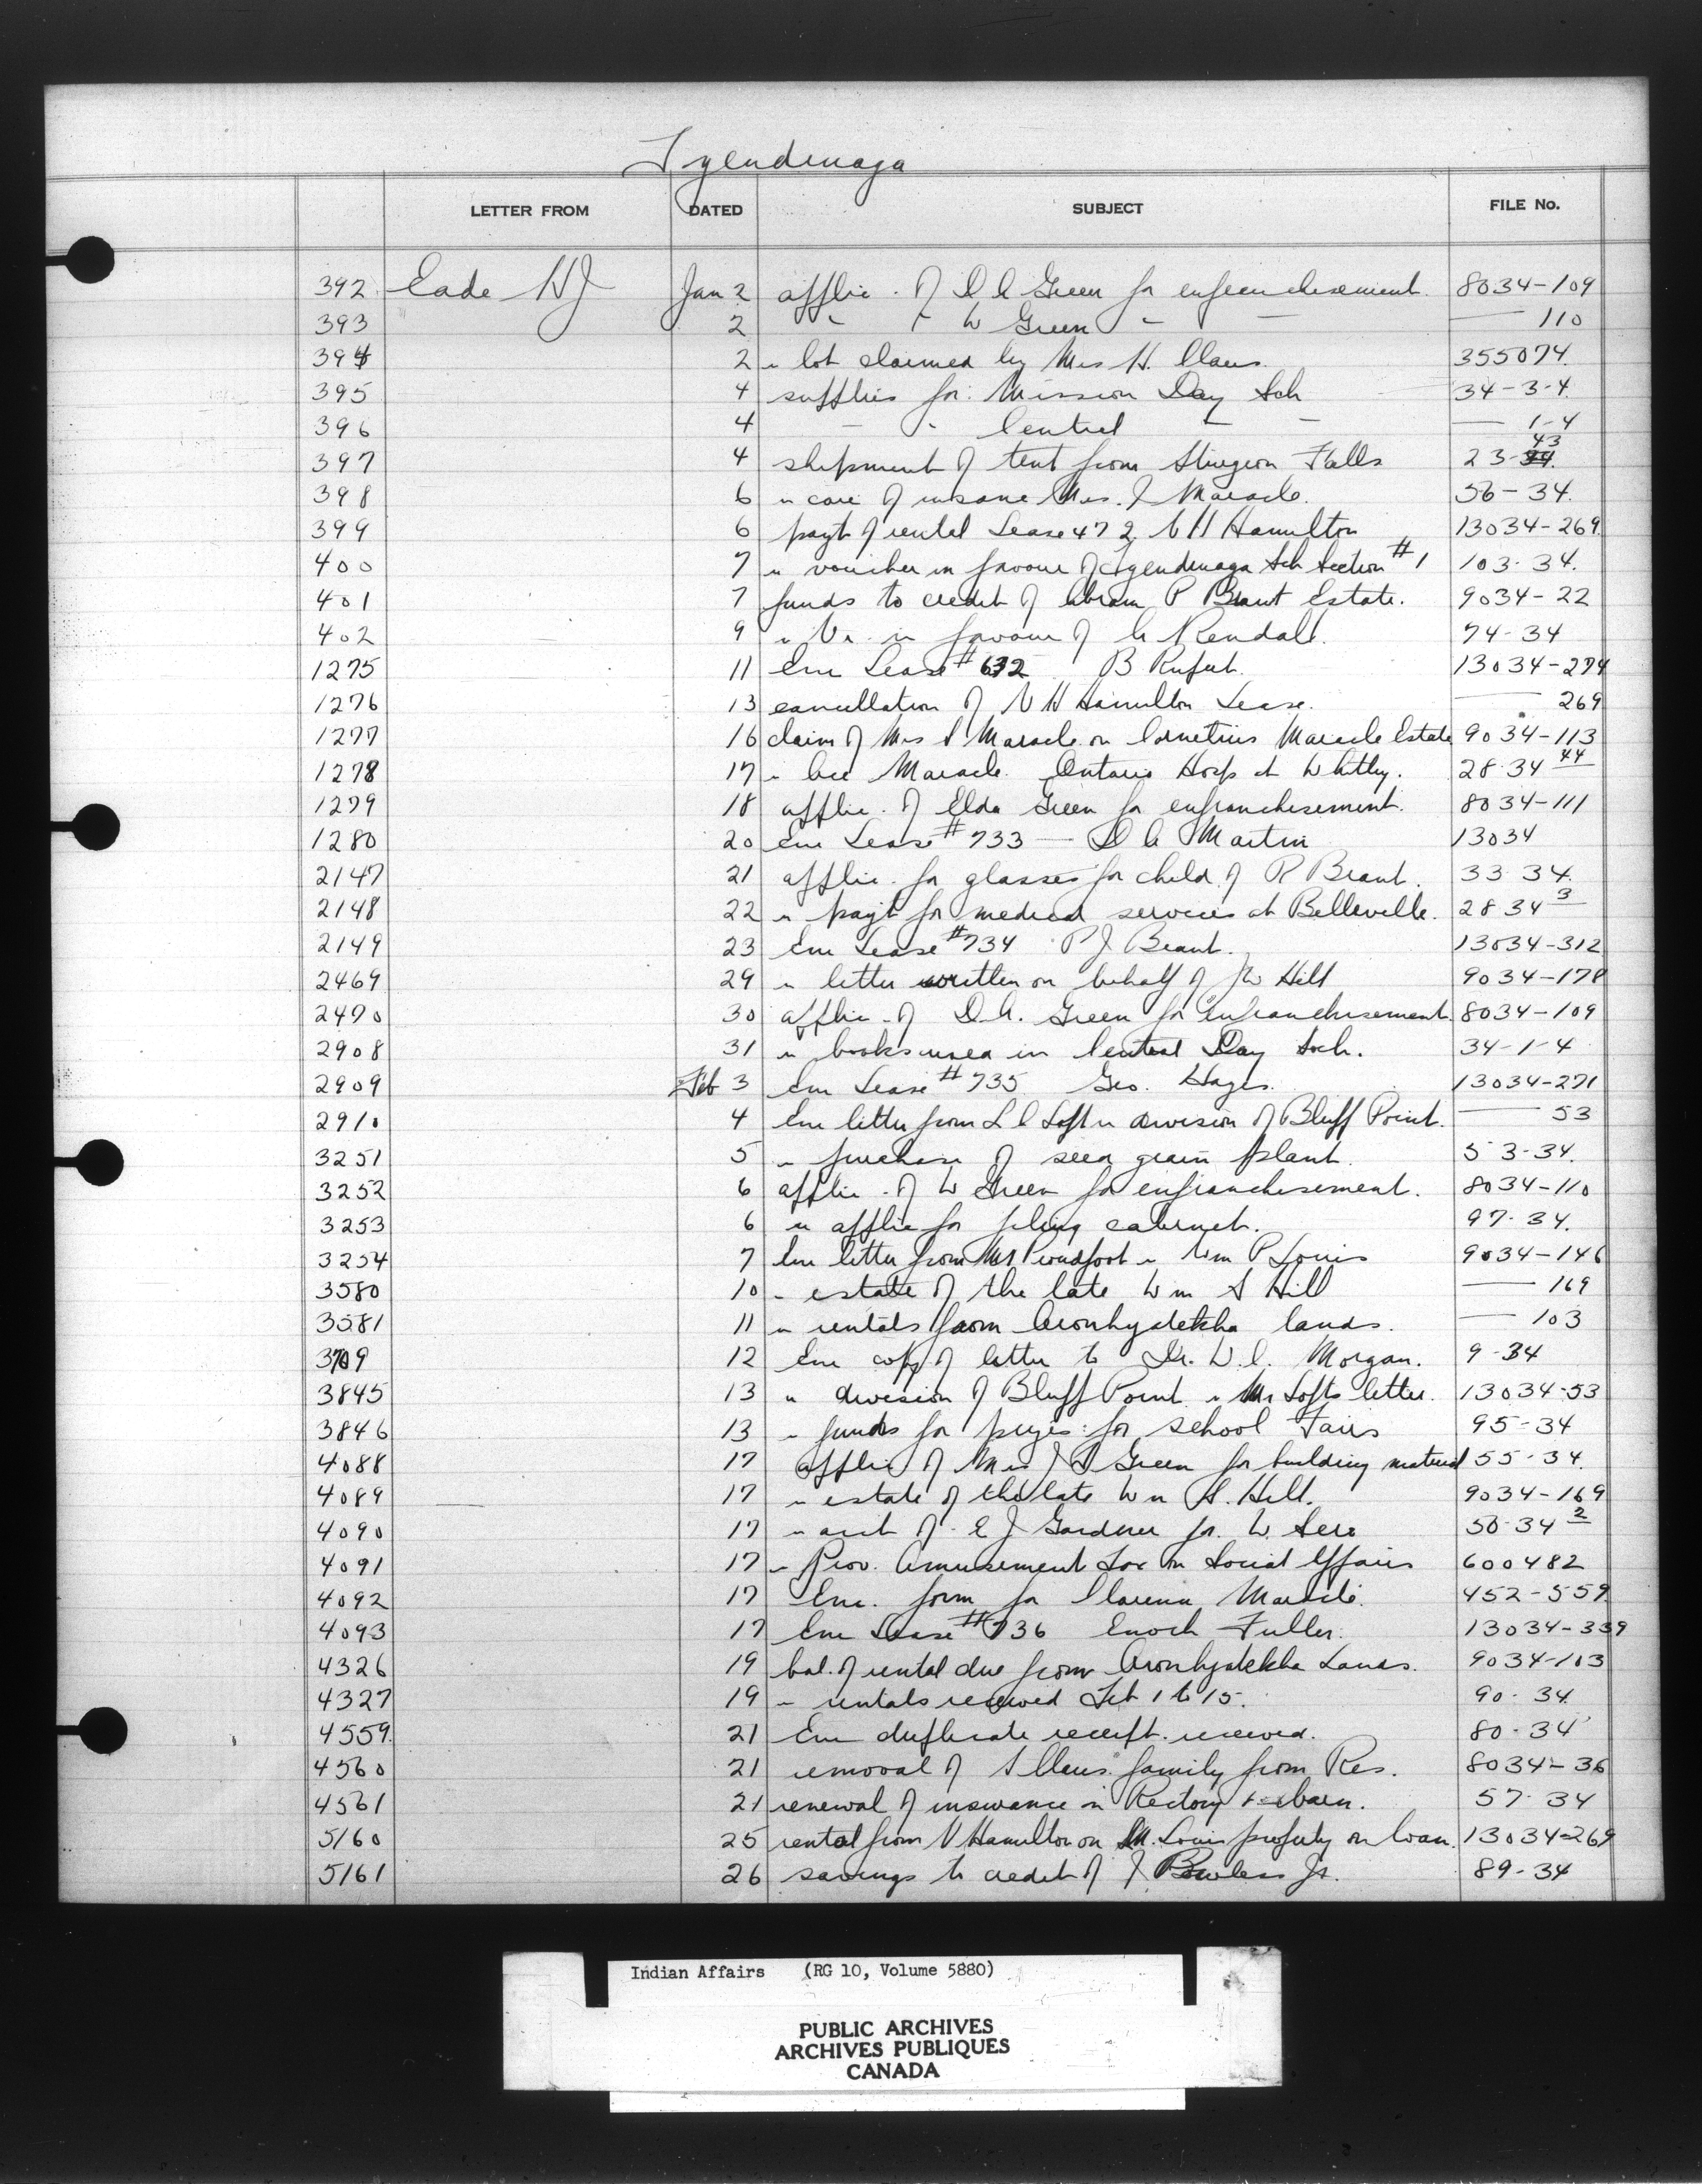 Tyendenaga
LETTER FROM DATED SUBJECT FILE No.
392 Eade HJ Jan 2 applic. of D A Green for enfranchisement 8034-109
393 2 " " W Green - - — 110
394 2 " lot claimed by Mrs H. Claus. 355074.
395 4 supplies for Mission Day Sch 34-3-4.
396 4 - " Central - - — 1-4
397 4 shipment of tent from Sturgeon Falls 23-43
398 6 " care of insane Mrs. J Maracle. 56-34.
399 6 payt of rental Lease 472 N H Hamilton 13034-269
400 7 " voucher in favour of Tyendenaga Sch Section #1 103-34.
401 7 funds to credit of Abram P Brant Estate. 9034-22
402 9 " Vr. in favour of Rendall. 74-34
1275 11 Enc Lease #632 B Rufut. 13034-274
1276 13 cancellation of N H Hamilton Lease. — 269
1277 16 claim of Mrs S Maracle on Cornelius Maracle Estate 9034-113
1278 17 " Maracle. Ontario Hosp at Whitby. 28-34 44
1279 18 applic. of Elda Green for enfranchisement. 8034-111
1280 20 Enc Lease #733 — D A Martin 13034
2147 21 applic. for glasses for child of R Brant. 33-34.
2148 22 " payt for medical services at Belleville. 28 34 3
2149 23 Enc Lease #734 P J Brant. 13034-312
2469 29 " letter written on behalf of JW Hill 9034-178
2470 30 applic - of D A. Green for enfranchisement. 8034-109
2908 31 " books used in Central Day Sch. 34-1-4
2909 Feb 3 Enc Lease #735 Geo. Hages. 13034-271
2910 4 Enc letter from L C Loft " division of Bluff Point. — 53
3251 5 " purchase of seed grain plant. 53-34.
3252 6 applic - of W Green for enfranchisement. 8034-110
3253 6 " applic for filing cabinet. 97-34.
3254 7 Enc letter from Mr Proudfoot " Wm P Louis 9034-146
3580 10 " estate of the late Wm S Hill — 169
3581 11 " rentals from Oronhyatekha lands. — 103
3709 12 Enc copy of letter to Dr. W.C. Morgan. 9-34
3845 13 " division of Bluff Point " Mr Lofts letter. 13034-53
3846 13 " funds for prizes for school Fairs 95-34
4088 17 applic of Mrs J D Green for building material 55-34.
4089 17 " estate of the late Wm S. Hill. 9034-169
4090 17 " acct of E J Gardner for W. Sero 50-34 2
4091 17 " Prov. Amusement Tax on Social Affairs 600482
4092 17 Enc. form for Clarence Maracle. 452-559
4093 17 Enc Lease #736 Enoch Fuller. 13034-339
4326 19 bal. of rental due from Oronhyatekha Lands. 9034-103
4327 19 " rentals received Feb 1 to 15. 90-34.
4559. 21 Enc duplicate receipt received. 80-34
4560 21 removal of S Claus family from Res. 8034-36
4561 21 renewal of insurance on Rectory & barn. 57-34
5160 25 rental from N Hamilton on M. Louis property on loan. 13034-269
5161 26 savings to credit of J Bowless Jr. 89-34
Indian Affairs (RG 10, Volume 5880)
PUBLIC ARCHIVES
ARCHIVES PUBLIQUES
CANADA